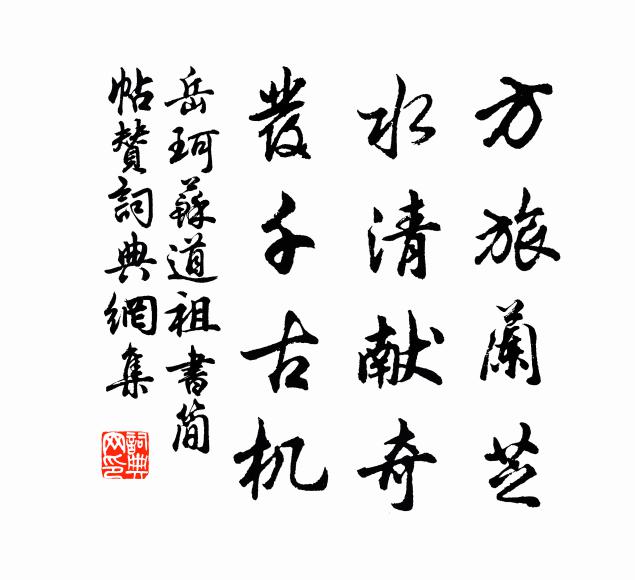 方旅蘭芝
水清献奇
發千古机
岳珂蘇道祖書简
帖贊詞典網集
詞典网印